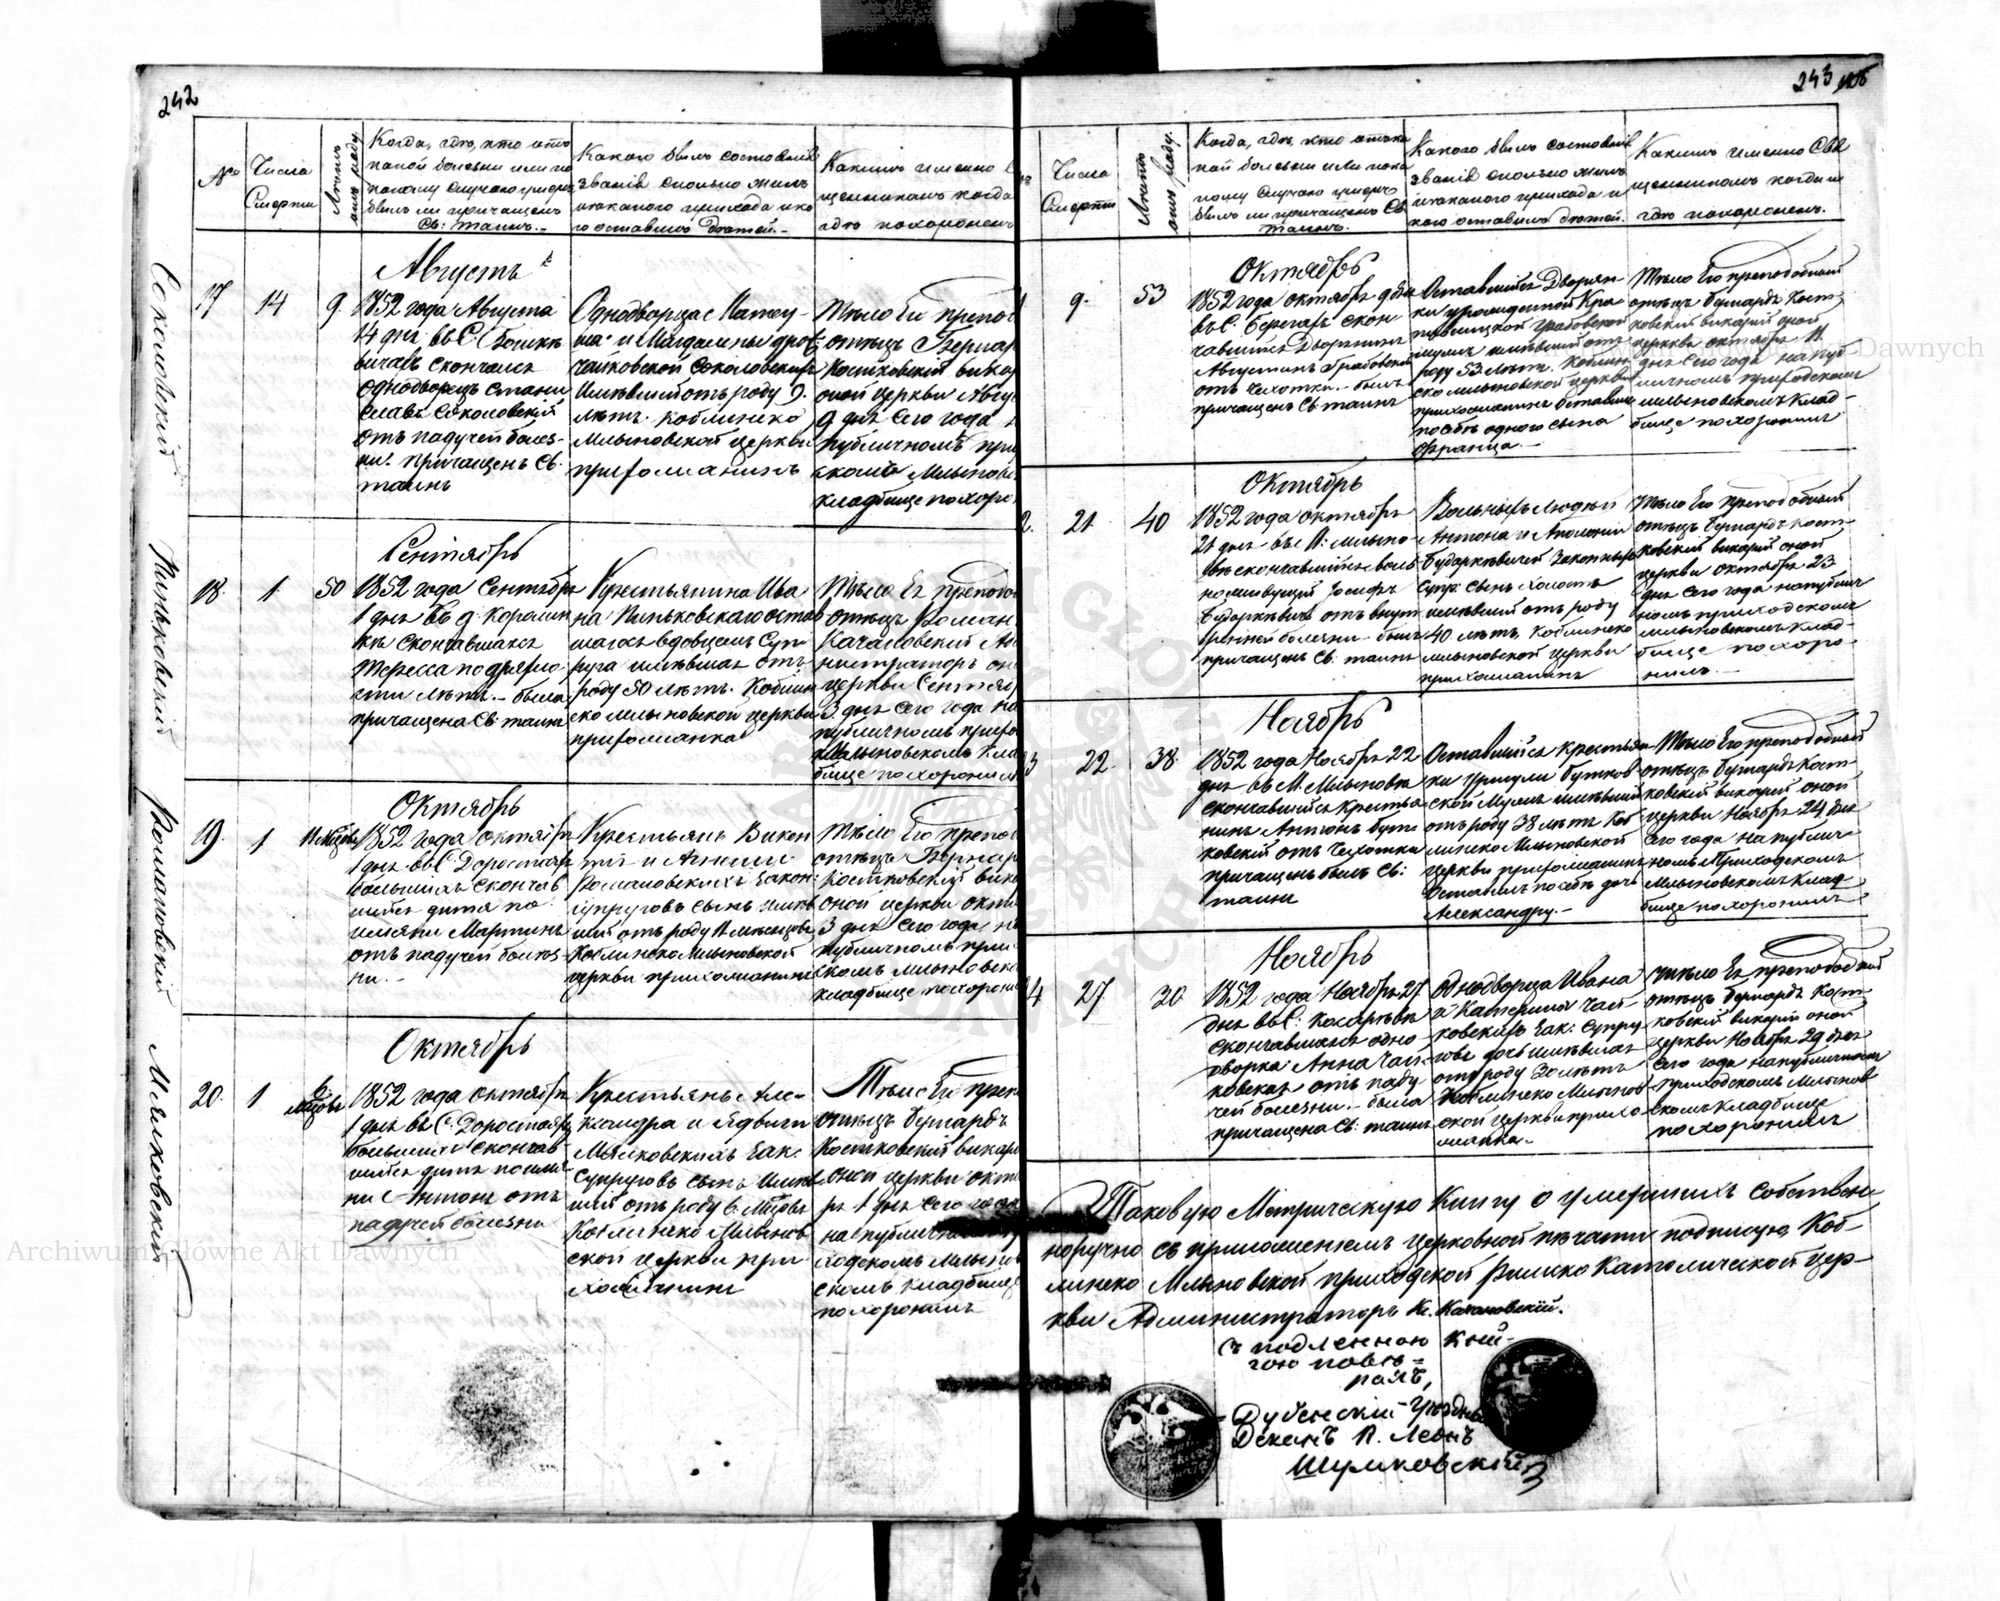 242
№
Числа
Смерти
Лѣтъ
отъ роду.
Когда, гдѣ, кто отъ
какой болезни или по
какому случаю умеръ
былъ ли причащенъ
Св: таинъ.-
Какого былъ состоянія
званія сколько жилъ
и какого прихода и ко
го оставилъ дѣтей.-
Какимъ именно С
щенникомъ когда
гдѣ похороненъ
Августъ
17
14
9.
1852 года Августа
14 дня въ С.
скончался
однодворецъ Стани
славъ Соколовскій
отъ падучей болез-
ни. причащенъ Св:
таинъ
Однодворца Матеу-
ша и Магдалены
Соколовскихъ
Имѣвшій отъ роду 9.
лѣтъ. Коблинско
Млыновской церкви
прихожанинъ
Тѣло Его препод
отецъ Бернар
Костковскій вика
оной церкви Авгу
9 дня сего года
публичномъ при
скомъ Млыновс
кладбище похоро
Сентябрь
18.
1.
50
1852 года Сентября
1 дня въ д. Корамн
кѣ скончавшаяся
Тересса по дряхло
сти лѣтъ.- была
причащена Св: таинъ
Крестьянина Ива
на Пиньковскаго остав
шаяся вдовцемъ Суп
руга имѣвшая отъ
роду 50 лѣтъ. Коблин
ско Млыновской церкви
прихожанка
Тѣло Ея преподо
отецъ Роман
Качановскій Ад
нистраторъ он
церкви Сентяб
3. дня сего года на
публичномъ прихо
Млыновскомъ кла
бище похоронил
Октябрь
19.
1
11 Мѣсць
1852 года октября
1 дня въ С. Доростаяхъ
большихъ скончав
шійся дитя по
имяни Мартинъ
отъ падучей болѣз-
ни.-
Крестьянъ Викен
тія и Агнеши
Романовскихъ закон:
супруговъ сынъ имѣв
шій отъ роду 11 мѣсяцовъ
Коблинско Млыновской
церкви прихожанинъ
Тѣло Его препод
отецъ Бернар
Костковскій вика
оной церкви октя
3 дня сего года на
публичномъ при
скомъ Млыновско
кладбище похорони
Октябрь
20.
1
6.
Мѣсцъ
1852 года октября
1 дня въ С. Доростаяхъ
большихъ скончав
шійся дитя по имя
ни Антонъ отъ
падучей болезни
Крестьянъ Але-
ксандра и Ядвиги
Мялковскихъ Зак:
Супруговъ сынъ имѣв
шій отъ роду 6. Мѣсць
Коблинско Млынов
ской церкви при
хожанинъ
Тѣло Его преп
отецъ Бернардъ
Костковскій викарі
оной церкви октя
ря 1 дня сего года
на публичн
ходскомъ Млынов
скомъ кладбище
похоронилъ
Соколовскій
Пиньковскій
Романовскій
Мялковскій
243
Числа
Смерти
Лѣтъ
отъ роду.
Когда, гдѣ, кто отъ ка
кой болезни или како
кому случаю умеръ
былъ ли причащенъ Св
таинъ.
Какого былъ состоянія
званія сколько жилъ
и какого прихода и
кого оставилъ дѣтей.
Какимъ именно Свя
щенникомъ когда и
гдѣ похороненъ.
Октябрь
9.
53
1852 года октября 9 дня
въ С. Берегахъ скон
чавшійся Дворянинъ
Августинъ Грабовскій
отъ чахотки.- былъ
причащенъ Св: таинъ
Оставшійся Дворян
ки урожденной Кра
Грабовской
мужъ имѣвшій отъ
роду 53 лѣтъ. Коблин
ско Млыновской церкви
прихожанинъ Оставив
по себѣ одного сына
Франца.-
Тѣло Его преподобный
отецъ Бернардъ Кост-
ковскій викарій оной
церкви октября 11
дня сего года на пуб
личномъ приходскомъ
Млыновскомъ клад-
бище похоронилъ
Октябрь
2.
21
40
1852 года октября
21 дня въ М: Млыно
вѣ скончавшійся воль
ножившій Іосифъ
Бударкевичъ отъ внут
ренней болезни - былъ
причащенъ Св: таинъ
Вольныхъ людей
Антона и Аполоніи
Бударкевичей Законныхъ
Супр: сынъ холостъ
имѣвшій отъ роду
40 лѣтъ. Коблинско
Млыновской церкви
прихожанинъ
Тѣло Его преподобный
отецъ Бернардъ Кост-
ковскій викарій оной
церкви октября 23
дня сего года на публич
номъ приходскомъ
Млыновскомъ клад-
бище похоро-
нилъ.-
Ноябрь
3
22
38.
1852 года Ноября 22
дня въ М. Млыновѣ
скончавшійся крестья
нинъ Антонъ Бут-
ковскій отъ чахотки
причащенъ былъ Св:
таинъ
Оставшійся крестьян
ки Уршули Бутков-
ской Мужъ имѣвшій
отъ роду 38 лѣтъ Коб
линско Млыновской
церкви прихожанинъ
Оставилъ по себѣ дочь
Александру.-
Тѣло Его преподобный
отецъ Бернардъ Кост-
ковскій викарій оной
церкви Ноября 24 дня
сего года на публич-
номъ Приходскомъ
Млыновскомъ клад
бище похоронилъ
Ноябрь
4
27
30
1852 года Ноября 27
дня въ С: Косаревѣ
скончавшаяся одно-
дворка Анна Чай-
ковская отъ паду
чей болезни.- была
причащена Св: таинъ
Однодворца Ивана
и Катерины Чай-
ковскихъ Зак: Супру
говъ дочь имѣвшая
отъ роду 30 лѣтъ
Коблинско Млынов
ской церкви прихо
жанка.-
Тѣло Ея преподобный
отецъ Бернардъ Кост-
ковскій викарій оной
церкви Ноября 29 дня
сего года на публичномъ
приходскомъ Млынов
скомъ кладбище
похоронилъ
Таковую Метрическую Книгу о умершихъ собствен
норучно съ приложеніемъ церковной печати подписую Коб-
линско Млыновской приходской Римско Католической цер-
кви Администраторъ К. Качановскій.
Съ подленною кни-
гою повѣ-
рялъ,
Дубенскій Уѣздный
Деканъ К. Леонъ
Шумковскій
Archiwum Główne Akt Dawnych
Archiwum Główne Akt Dawnych